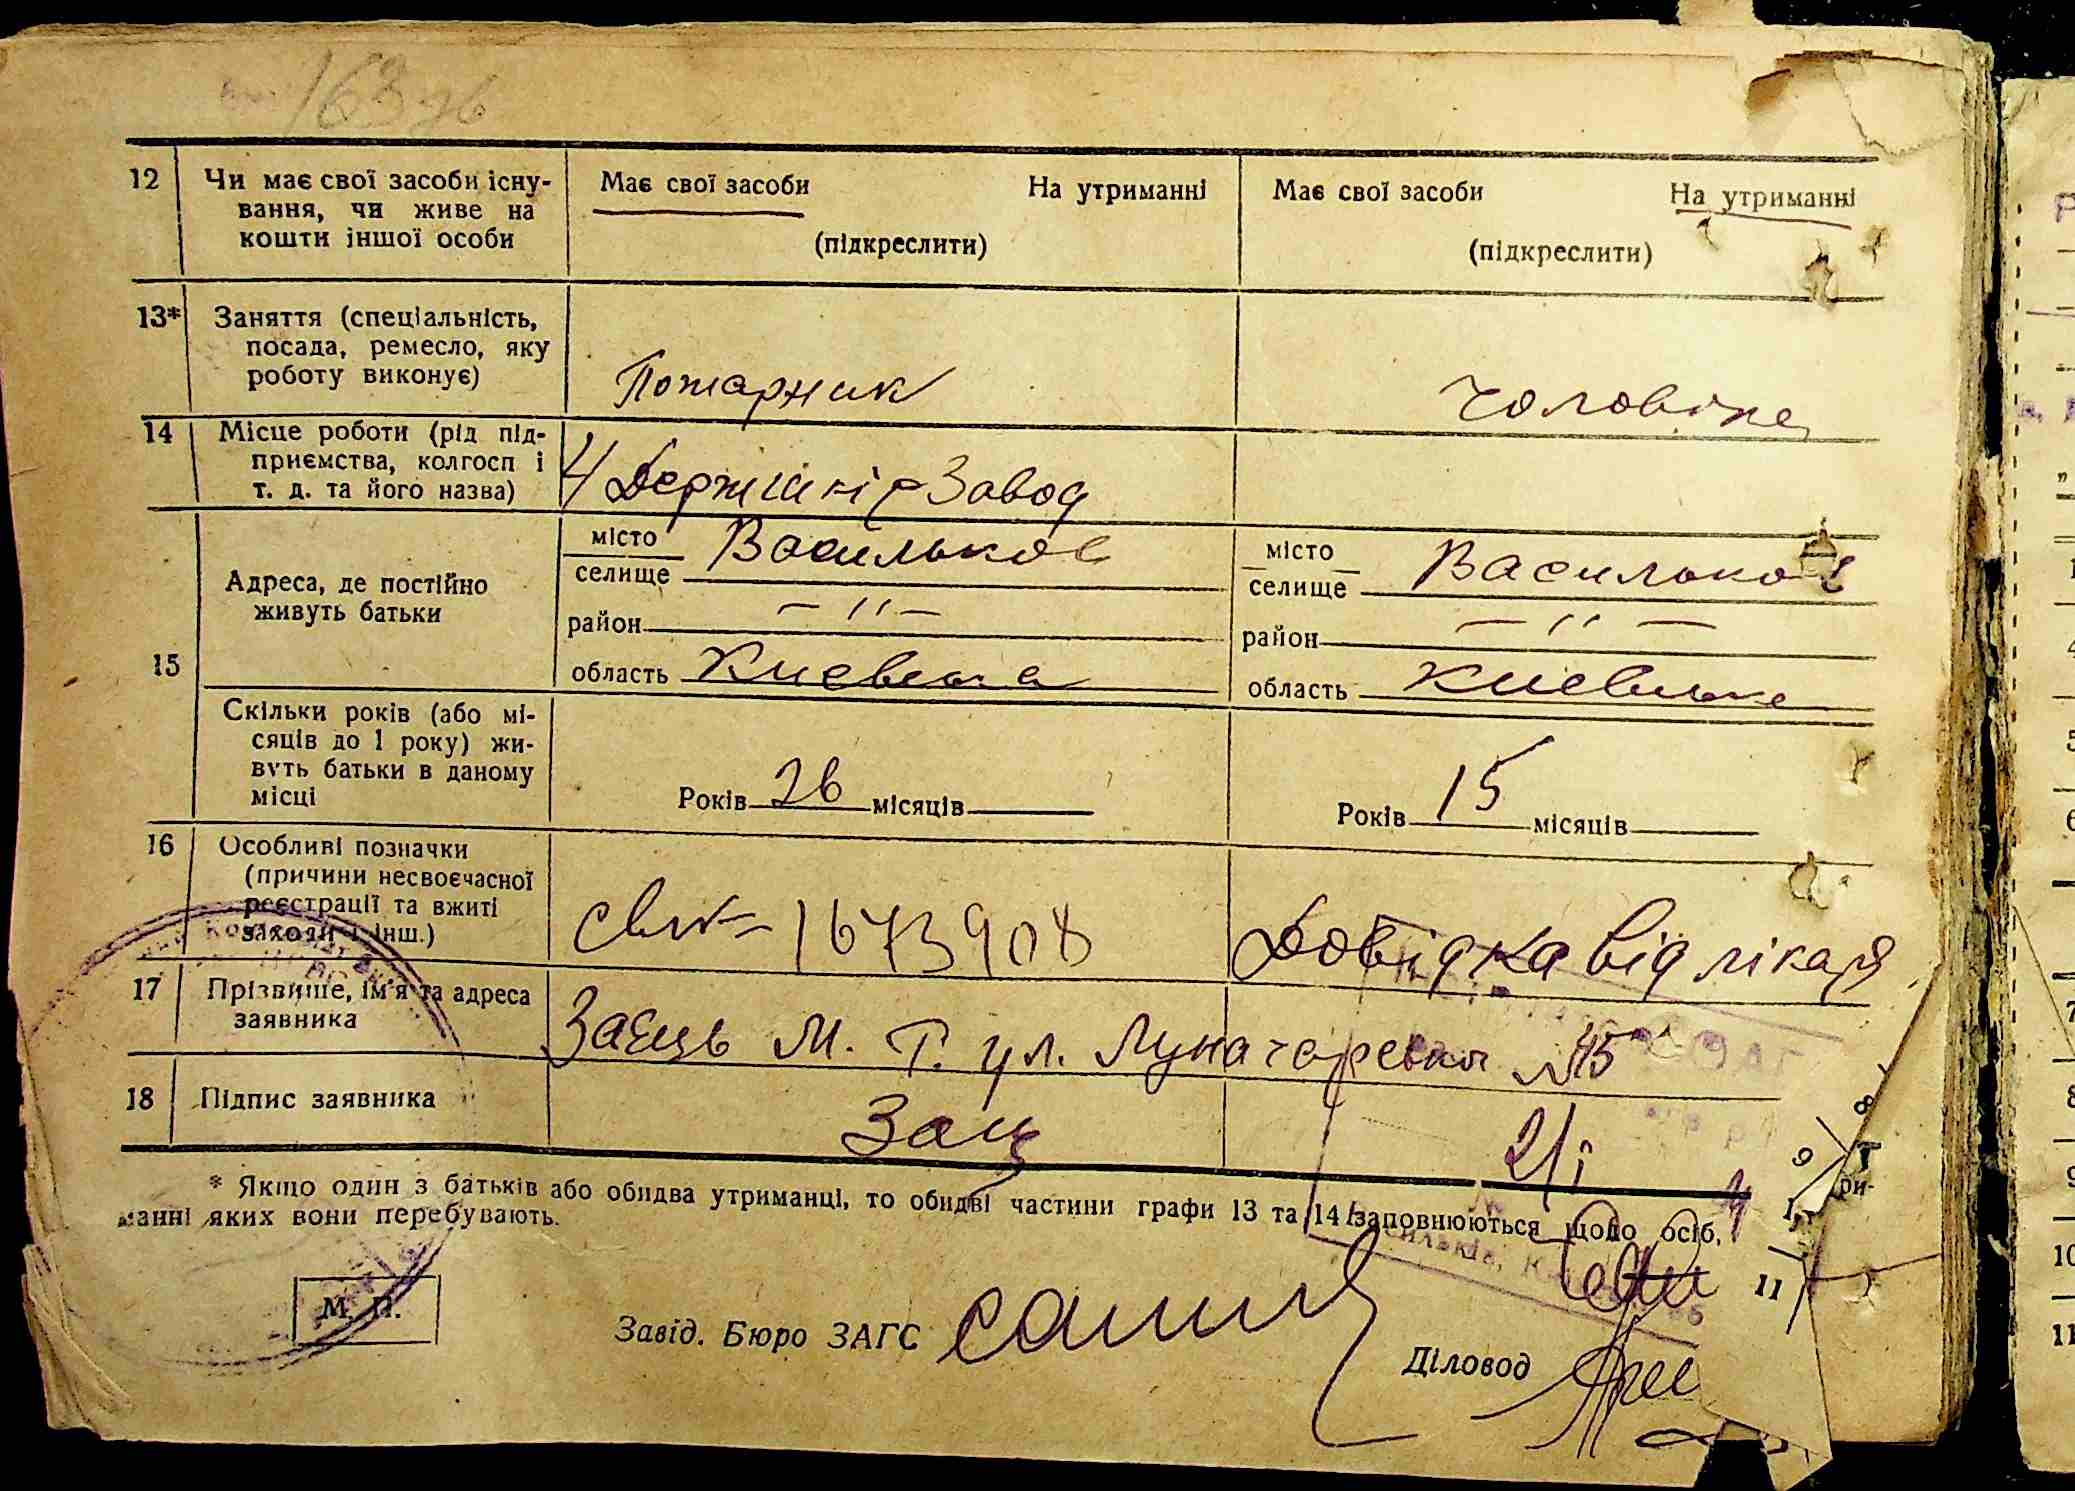 163
12 Чи має свої засоби існу- Має свої засоби На утриманні Має свої засоби На утриманні
вання, чи живе на
кошти іншої особи (підкреслити) (підкреслити)
13* Заняття (спеціальність,
посада, ремесло, яку
роботу виконує) Пожарник Чоловіка
14 Місце роботи (рід під-
приємства, колгосп і
т. д. та його назва) 4 Держшкір Завод
місто Васильков місто Васильков
селище селище
Адреса, де постійно
живуть батьки район — 〃 — район — 〃 —
15 область Киевська область Киевська
Скільки років (або мі-
сяців до 1 року) жи-
вуть батьки в даному
місці Років 26 місяців Років 15 місяців
16 Особливі позначки
(причини несвоєчасної
реєстрації та вжиті
заходи і інш.) 1673908 Довідка від лікаря
17 Прізвище, ім'я та адреса
заявника Заєць М. Т. ул. Луначарська №45
18 Підпис заявника Заец
21/I
* Якщо один з батьків або обидва утриманці, то обидві частини графи 13 та 14 заповнюються щодо осіб,
манні яких вони перебувають.
М. П.
Завід. Бюро ЗАГС
Діловод
8
9
11
1
4
5
6
7
8
9
10
11